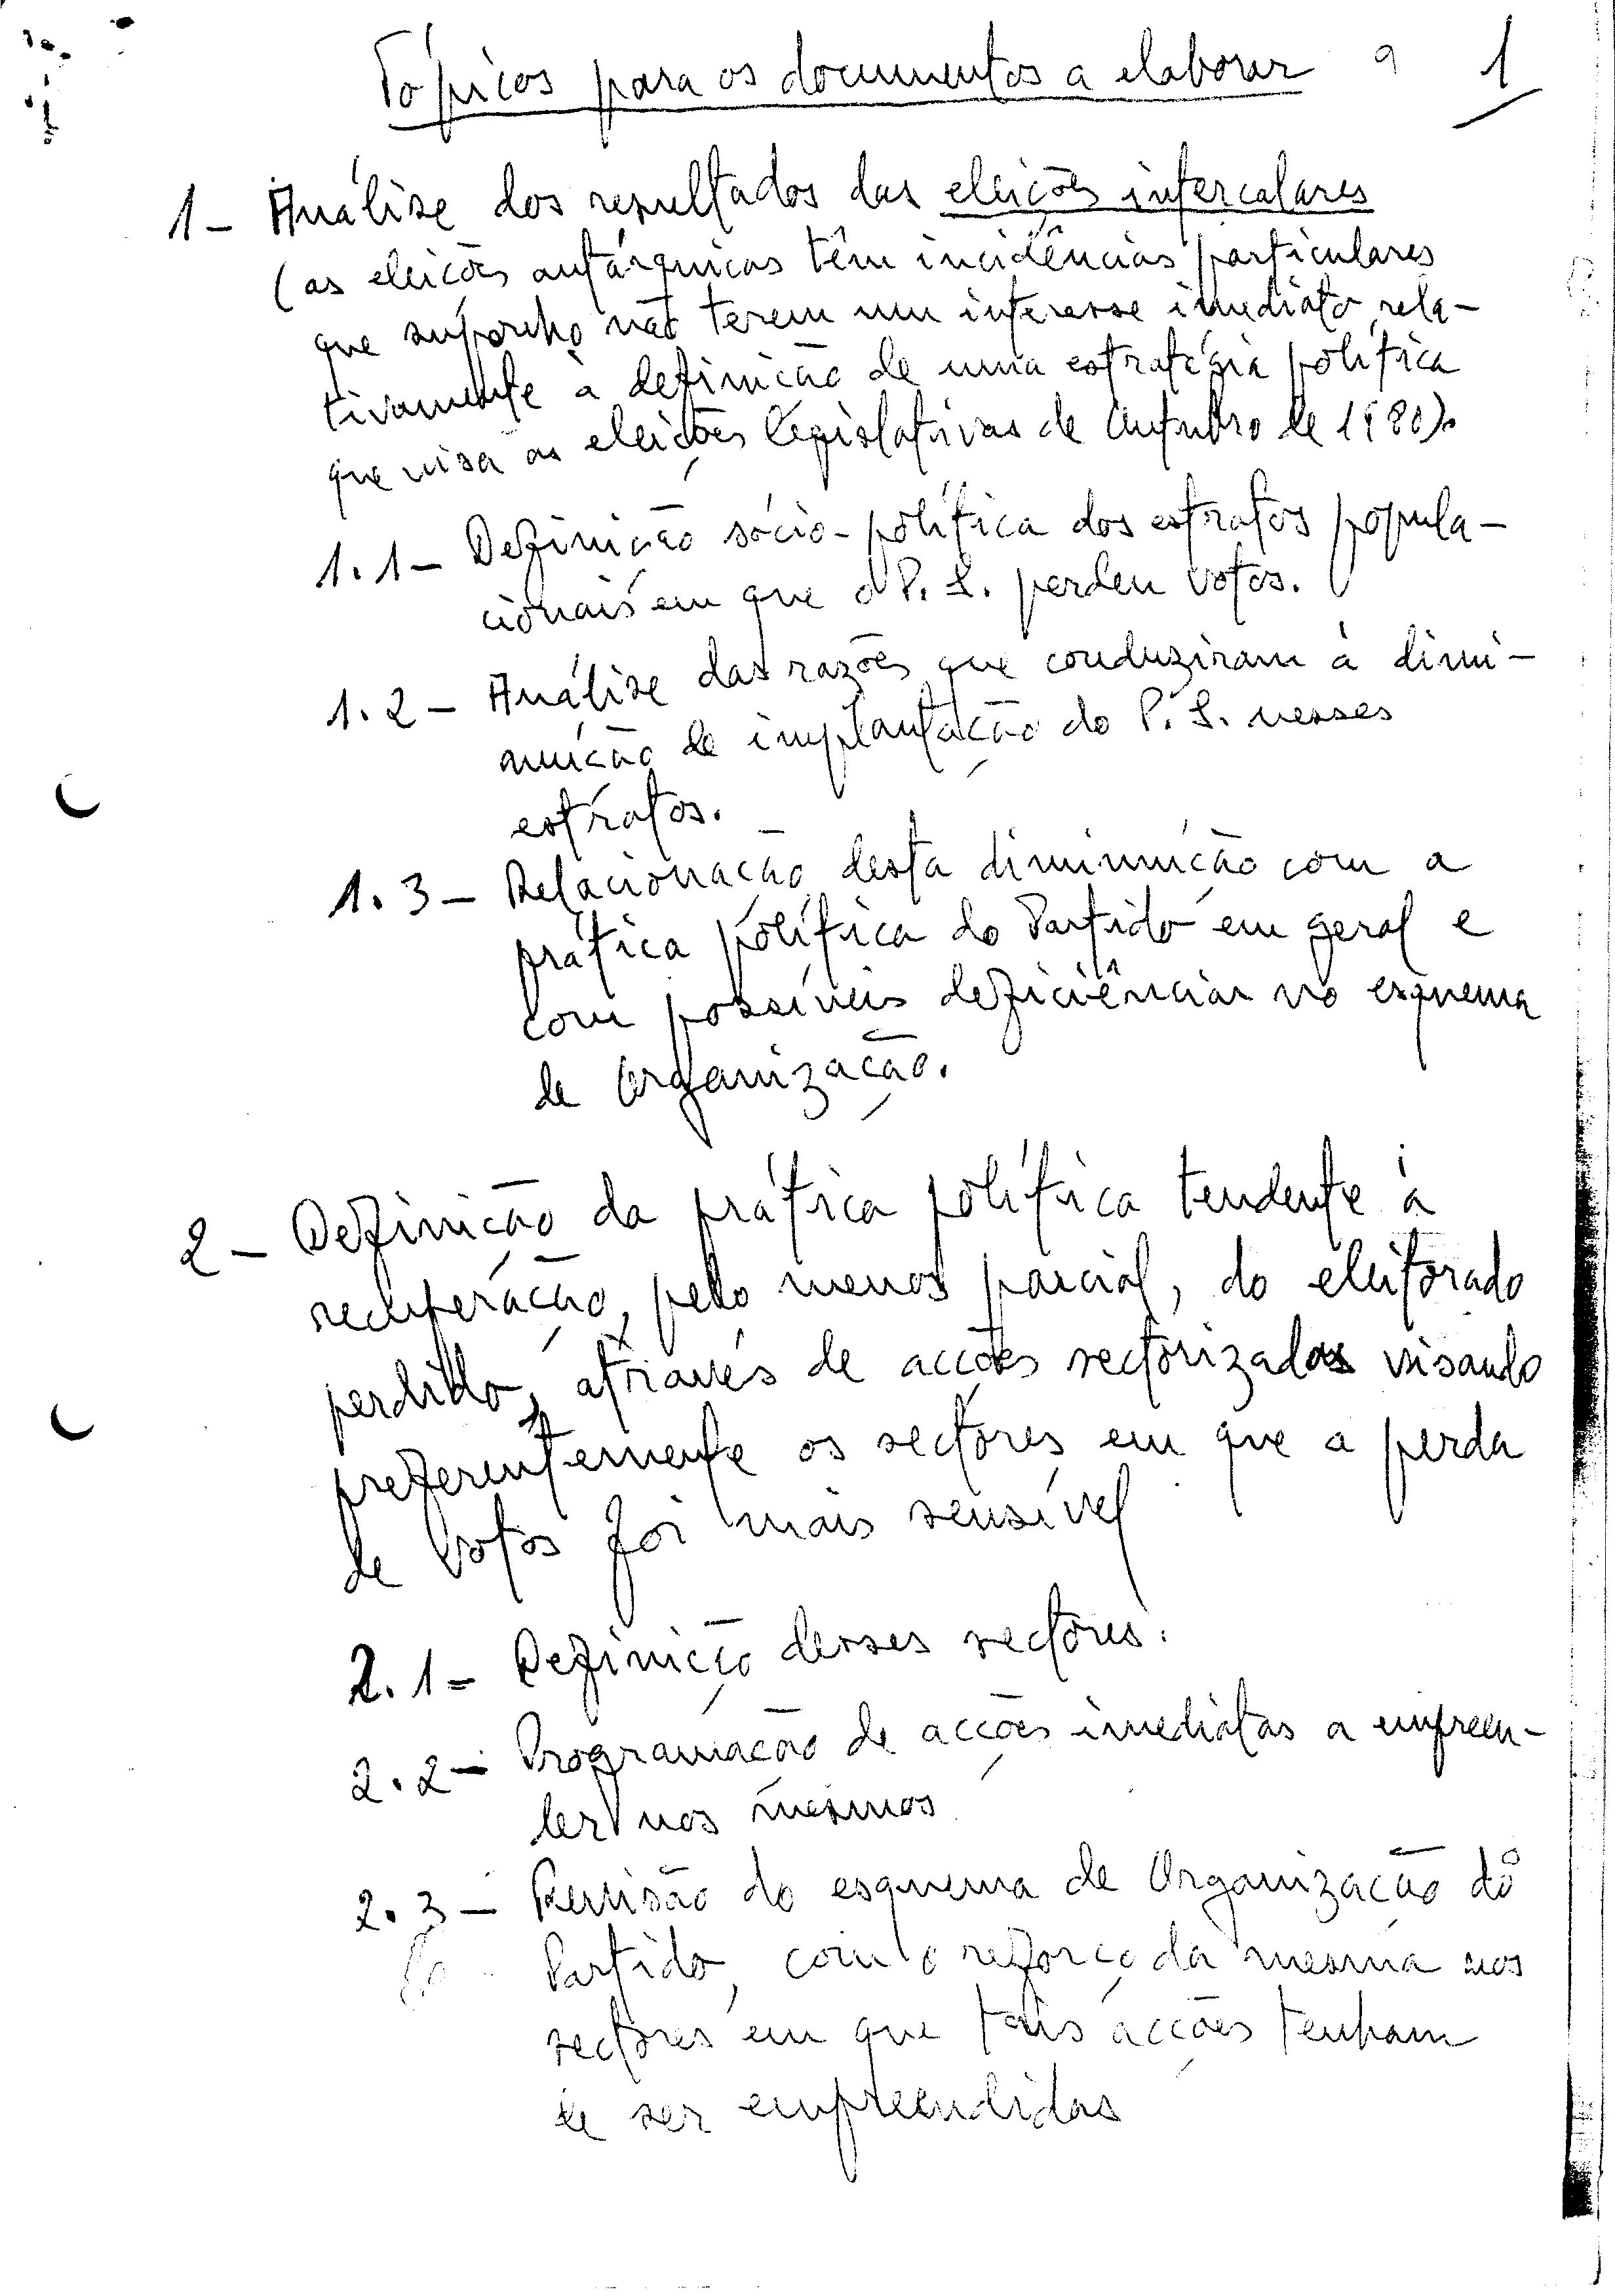 Tópicos para os documentos a elaborar 1
1- Análise dos resultados das eleições intercalares
(as eleições autárquicas têm incidências particulares
que suponho não terem um interesse imediato rela-
tivamente à definição de uma estratégia política
que visa as eleições legislativas de Outubro de 1980).
1.1- Definição sócio-política dos estratos popula-
cionais em que o P.S. perdeu votos.
1.2- Análise das razões que conduziram à dimi-
nuição de implantação do P.S. nesses
estratos.
1.3- Relacionação desta diminuição com a
prática política do Partido em geral e
com possíveis deficiências no esquema
de Organização.
2- Definição da prática política tendente à
recuperação, pelo menos parcial, do eleitorado
perdido, através de acções sectorizadas visando
preferentemente os sectores em que a perda
de votos foi mais sensível
2.1- Definição desses sectores.
2.2- Programação de acções imediatas a empreen-
der nos mesmos
2.3- Revisão do esquema de Organização do
Partido, com o reforço da mesma nos
sectores em que tais acções tenham
de ser empreendidas